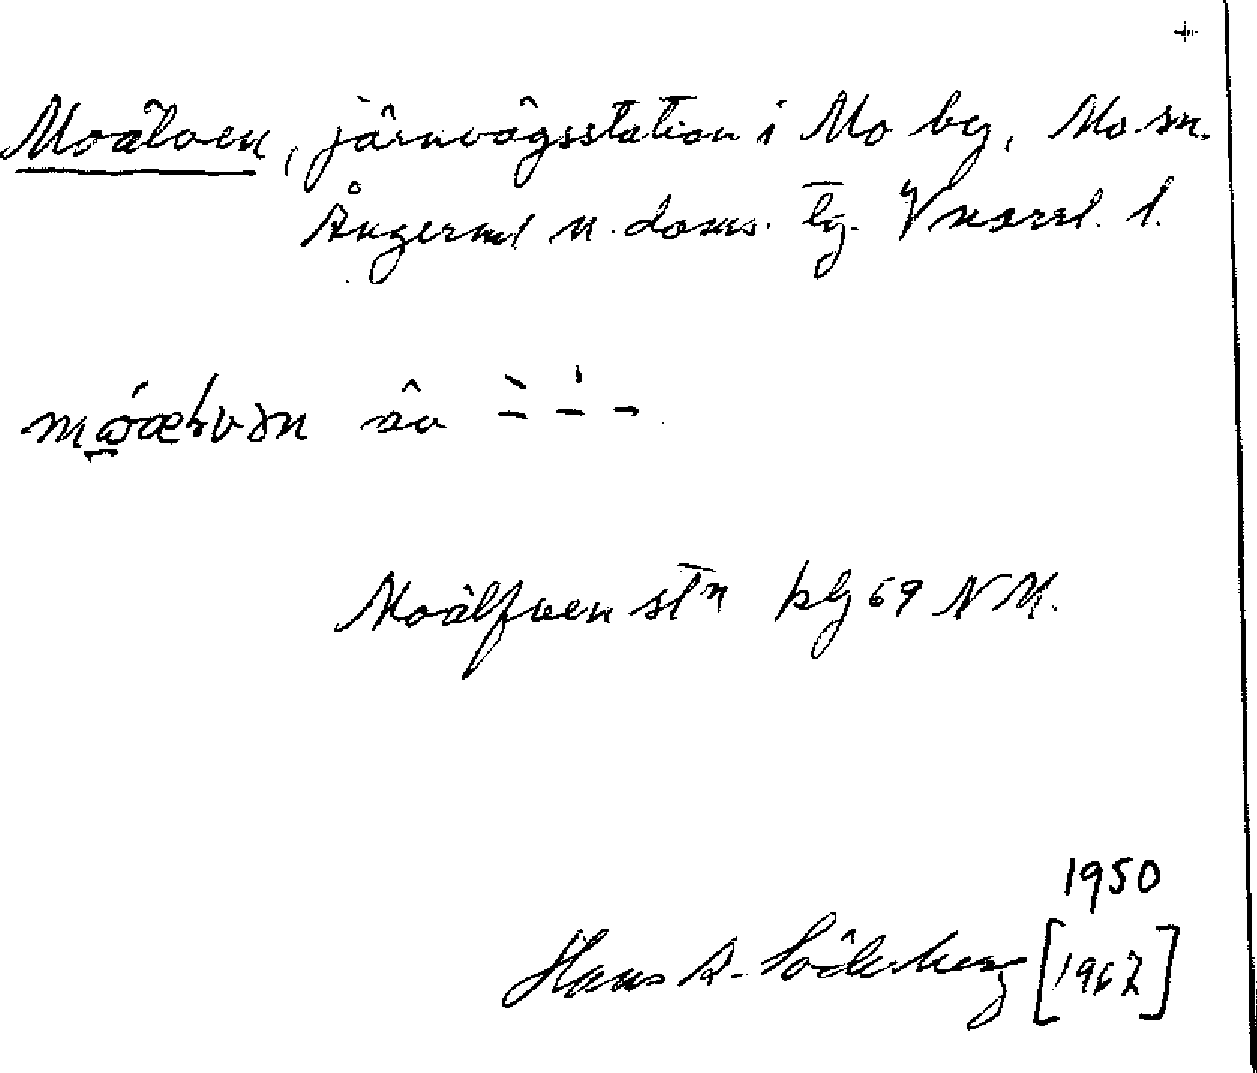 +
Moälven, järnvägsstation i Mo by, Mo sn.
Ångerml n. doms. tg. Vnorrl. l.
äv
Moälfven stn blg 69 NM.
1950
Hans A. Söderberg [1962]